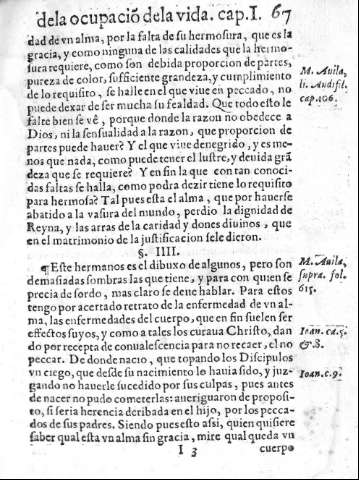 dela ocupació dela vida. cap.I. 67
dad de vn alma, por la falta de su hermosura, que es la
gracia, y como ninguna de las calidades que la hermo-
sura requiere, como son debida proporcion de partes,
pureza de color, sufficiente grandeza, y cumplimiento
de lo requisito, se halle en el que viue en peccado, no
puede dexar de ser mucha su fealdad. Que todo esto le
falte bien se vê, porque donde la razon no obedece a
Dios, ni la sensualidad a la razon, que proporcion de
partes puede hauer? Y el que viue denegrido, y es me-
nos que nada, como puede tener el lustre, y deuida grã
deza que se requiere? Y en fin la que con tan conoci-
das faltas se halla, como podra dezir tiene lo requisito
para hermosa? Tal pues esta el alma, que por hauerse
abatido a la vasura del mundo, perdio la dignidad de
Reyna, y las arras de la caridad y dones diuinos, que
en el matrimonio de la justificacion se le dieron.
§. IIII.
¶Este hermanos es el dibuxo de algunos, pero son
demasiadas sombras las que tiene, y para con quien se
precia de sordo, mas claro se deue hablar. Para estos
tengo por acertado retrato de la enfermedad de vn al-
ma, las enfermedades del cuerpo, que en fin suelen ser
effectos suyos, y como a tales los curaua Christo, dan
do por recepta de conualescencia para no recaer, el no
peccar. De donde nacio, que topando los Discipulos
vn ciego, que desde su nacimiento lo hauia sido, y juz-
gando no hauerle sucedido por sus culpas, pues antes
de nacer no pudo cometerlas: aueriguaron de proposi-
to, si seria herencia deribada en el hijo, por los pecca-
dos de sus padres. Siendo pues esto assi, quien quisiere
saber qual esta vn alma sin gracia, mire qual queda vn
I 3 cuerpo
M. Auila,
li. Audifil.
cap. 106.
M. Auila,
supra. fol.
615.
Ioan. ca. 5.
& 8.
Ioan. c. 9.